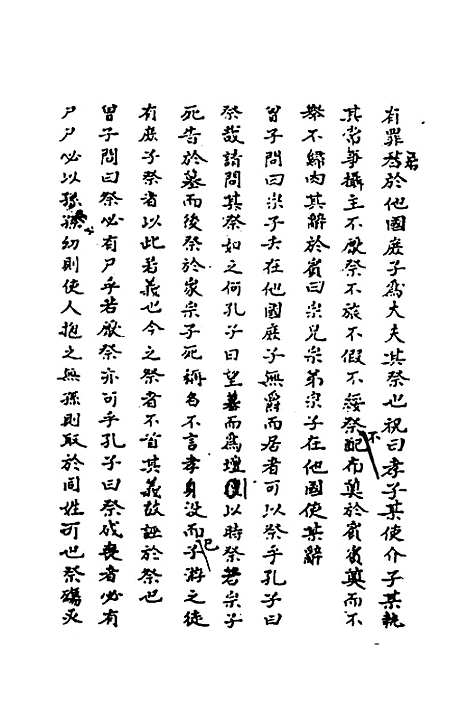 有罪居於他國庶子為大夫其祭也祝曰孝子某使介子某執
其常事攝主不厭祭不旅不假不綏祭不配布奠於賓賓奠而不
舉不歸肉其辭於賓曰宗兄宗弟宗子在他國使某辭
曽子問曰宗子去在他國庶子無爵而居者可以祭乎孔子曰
祭哉請問其祭如之何孔子曰望墓而為壇以時祭若宗子
死告於墓而後祭於家宗子死稱名不言孝身没而已子游之徒
有庶子祭者以此若義也今之祭者不首其義故誣於祭也
曽子問曰祭必有尸乎若厭祭亦可乎孔子曰祭成喪者必有
尸尸必以孫孫幼則使人抱之無孫則取於同姓可也祭殤必